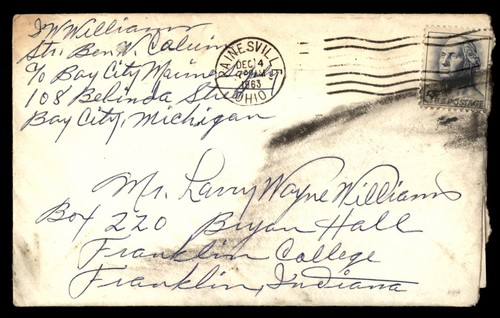 JW Williams
Str. Ben W. Calvin
c/o Bay City Marine
108 Belinda Street
Bay City, Michigan
PAINESVILLE
DEC 4
1963
OHIO
U.S. POSTAGE
Mr. Larry Wayne Williams
Box 220 Bryan Hall
Franklin College
Franklin, Indiana